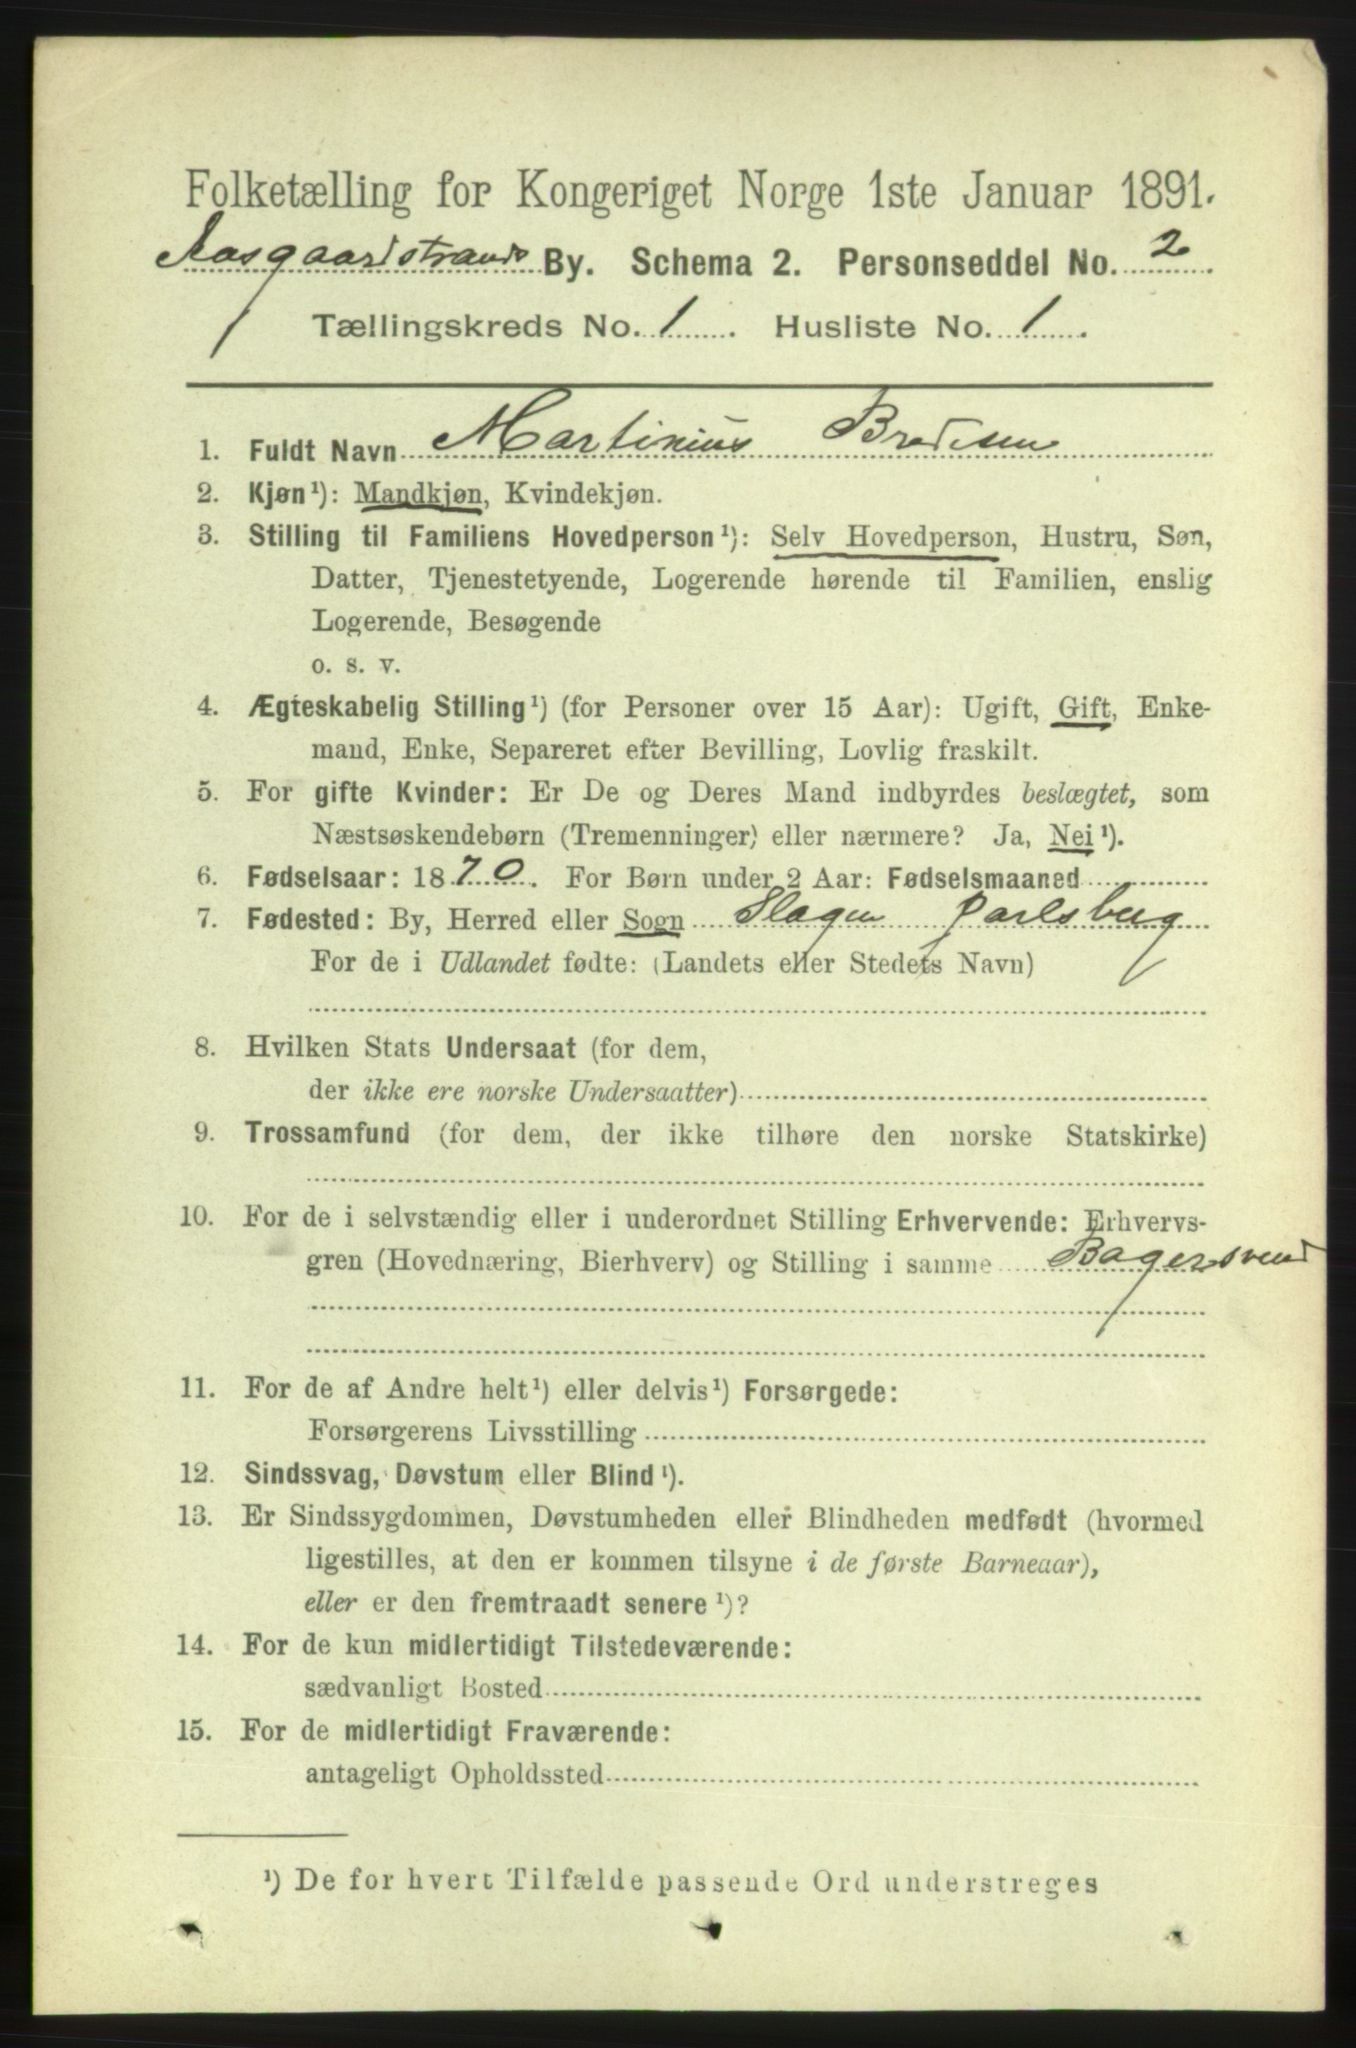 Folketælling for Kongeriget Norge 1ste Januar 1891.
Aasgaardstrands By. Schema 2. Personseddel No. 2
Tællingskreds No. 1. Husliste No. 1.
1. Fuldt Navn Martinius Bredesen
2. Kjøn¹): Mandkjøn, Kvindekjøn.
3. Stilling til Familiens Hovedperson¹): Selv Hovedperson, Hustru, Søn,
Datter, Tjenestetyende, Logerende hørende til Familien, enslig
Logerende, Besøgende
o. s. v.
4. Ægteskabelig Stilling¹) (for Personer over 15 Aar): Ugift, Gift, Enke-
mand, Enke, Separeret efter Bevilling, Lovlig fraskilt.
5. For gifte Kvinder: Er De og Deres Mand indbyrdes beslægtet, som
Næstsøskendebørn (Tremenninger) eller nærmere? Ja, Nei¹).
6. Fødselsaar: 1870. For Børn under 2 Aar: Fødselsmaaned
7. Fødested: By, Herred eller Sogn Slagen Jarlsberg
For de i Udlandet fødte: (Landets eller Stedets Navn)
8. Hvilken Stats Undersaat (for dem,
der ikke ere norske Undersaatter)
9. Trossamfund (for dem, der ikke tilhøre den norske Statskirke)
10. For de i selvstændig eller i underordnet Stilling Erhvervende: Erhvervs-
gren (Hovednæring, Bierhverv) og Stilling i samme Bagersvend
11. For de af Andre helt¹) eller delvis¹) Forsørgede:
Forsørgerens Livsstilling
12. Sindssvag, Døvstum eller Blind¹).
13. Er Sindssygdommen, Døvstumheden eller Blindheden medfødt (hvormed
ligestilles, at den er kommen tilsyne i de første Barneaar),
eller er den fremtraadt senere¹)?
14. For de kun midlertidigt Tilstedeværende:
sædvanligt Bosted
15. For de midlertidigt Fraværende:
antageligt Opholdssted
¹) De for hvert Tilfælde passende Ord understreges